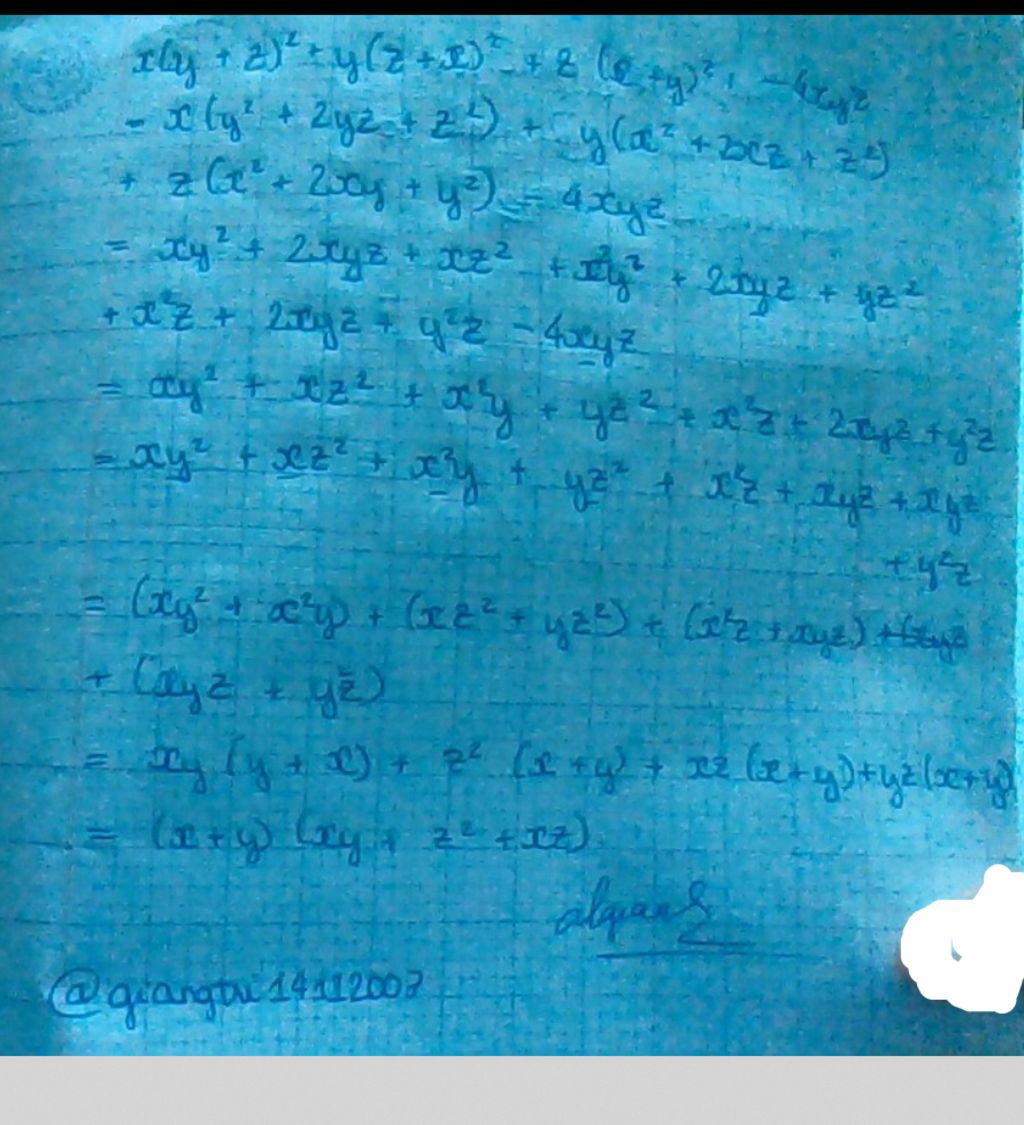 x(y + z)² + y(z + x)² + z (x + y)² - 4xyz
= x(y² + 2yz + z²) + y(x² + 2xz + z²)
+ z(x² + 2xy + y²) - 4xyz
= xy² + 2xyz + xz² + x²y + 2xyz + yz²
+ x²z + 2xyz + y²z - 4xyz
= xy² + xz² + x²y + yz² + x²z + 2xyz + y²z
= xy² + xz² + x²y + yz² + x²z + xyz + xyz
+ y²z
= (xy² + x²y) + (xz² + yz²) + (x²z + xyz)
+ (xyz + y²z)
= xy (y + x) + z² (x + y) + xz (x + y) + yz(x+y)
= (x + y) (xy + z² + xz)
@giangtri14112007